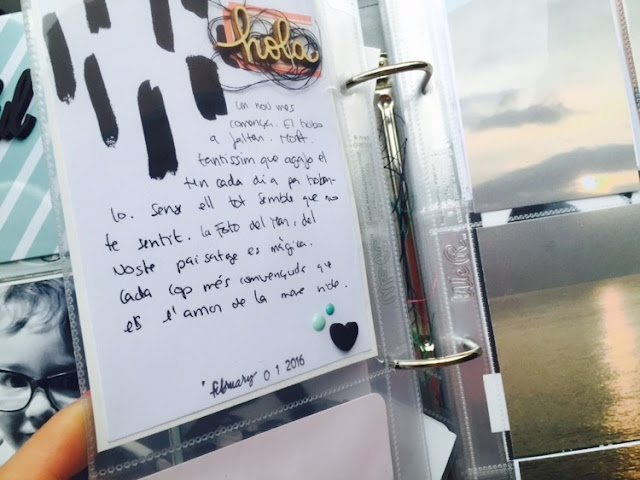 hola
un nou mes
comença. El trobo
a faltar. Molt.
tantíssim que agafo el
tren cada dia per trobar-
lo. Sense ell tot sembla que no
te sentit. La foto del mar, del
noste paisatge es màgica.
Cada cop més convençuda que
és l'amor de la meva vida.
february 01 2016